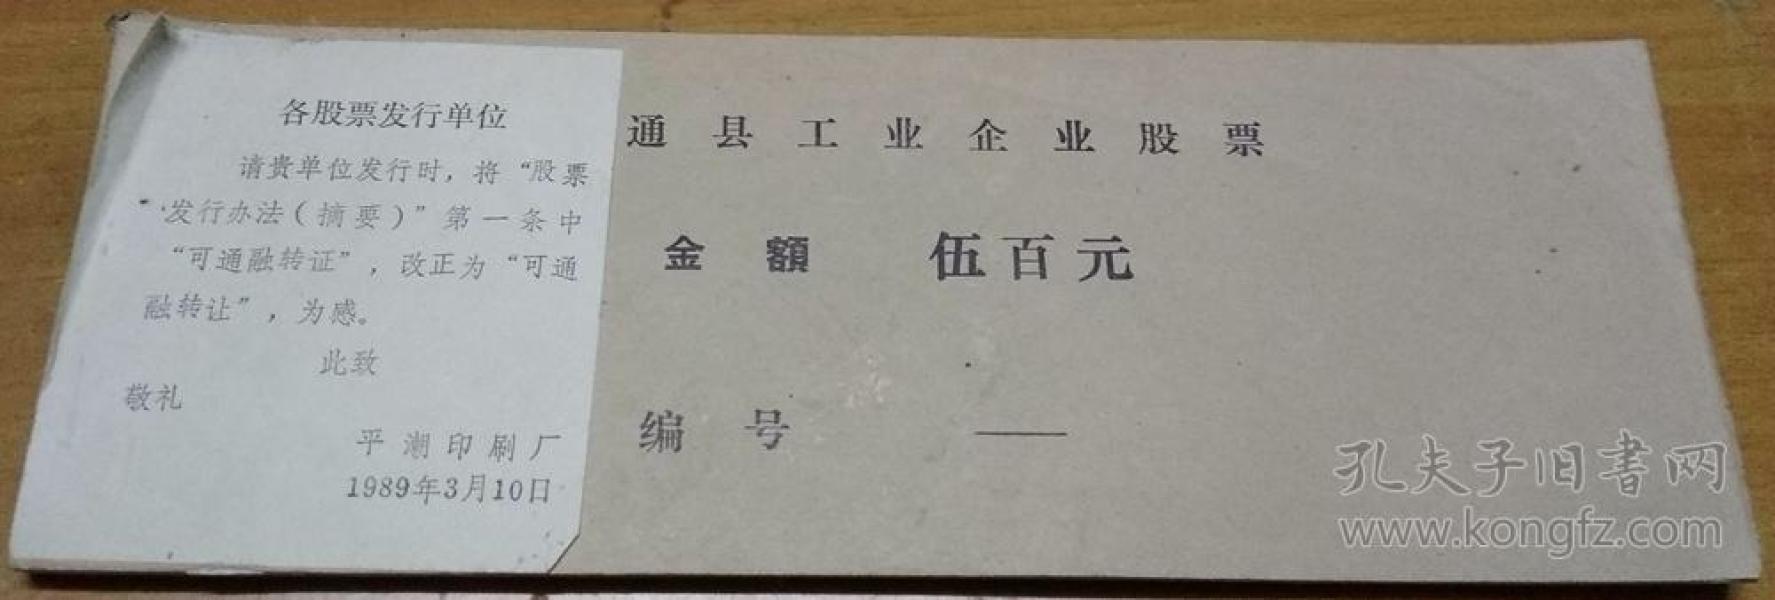 各股票发行单位
请贵单位发行时，将“股票
发行办法(摘要)”第一条中
“可通融转证”，改正为“可通
融转让”，为感。
此致
敬礼
平潮印刷厂
1989年3月10日
通县工业企业股票
金额 伍百元
编号 ——
孔夫子旧書网
www.kongfz.com